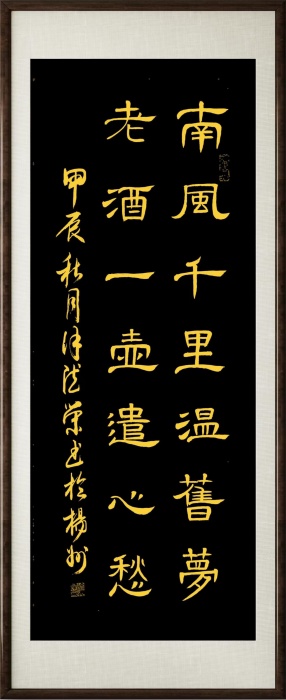 南風千里温舊夢
老酒一壺遣心愁
甲辰秋月徐德榮書於楊州